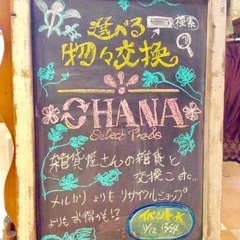 選べる
検索
物々交換
OHANA
Select Trade
雑貨屋さんの雑貨と
交換こす。。
メルカリよりもリサイクルショップ
よりもお得かも!?
イベント☆